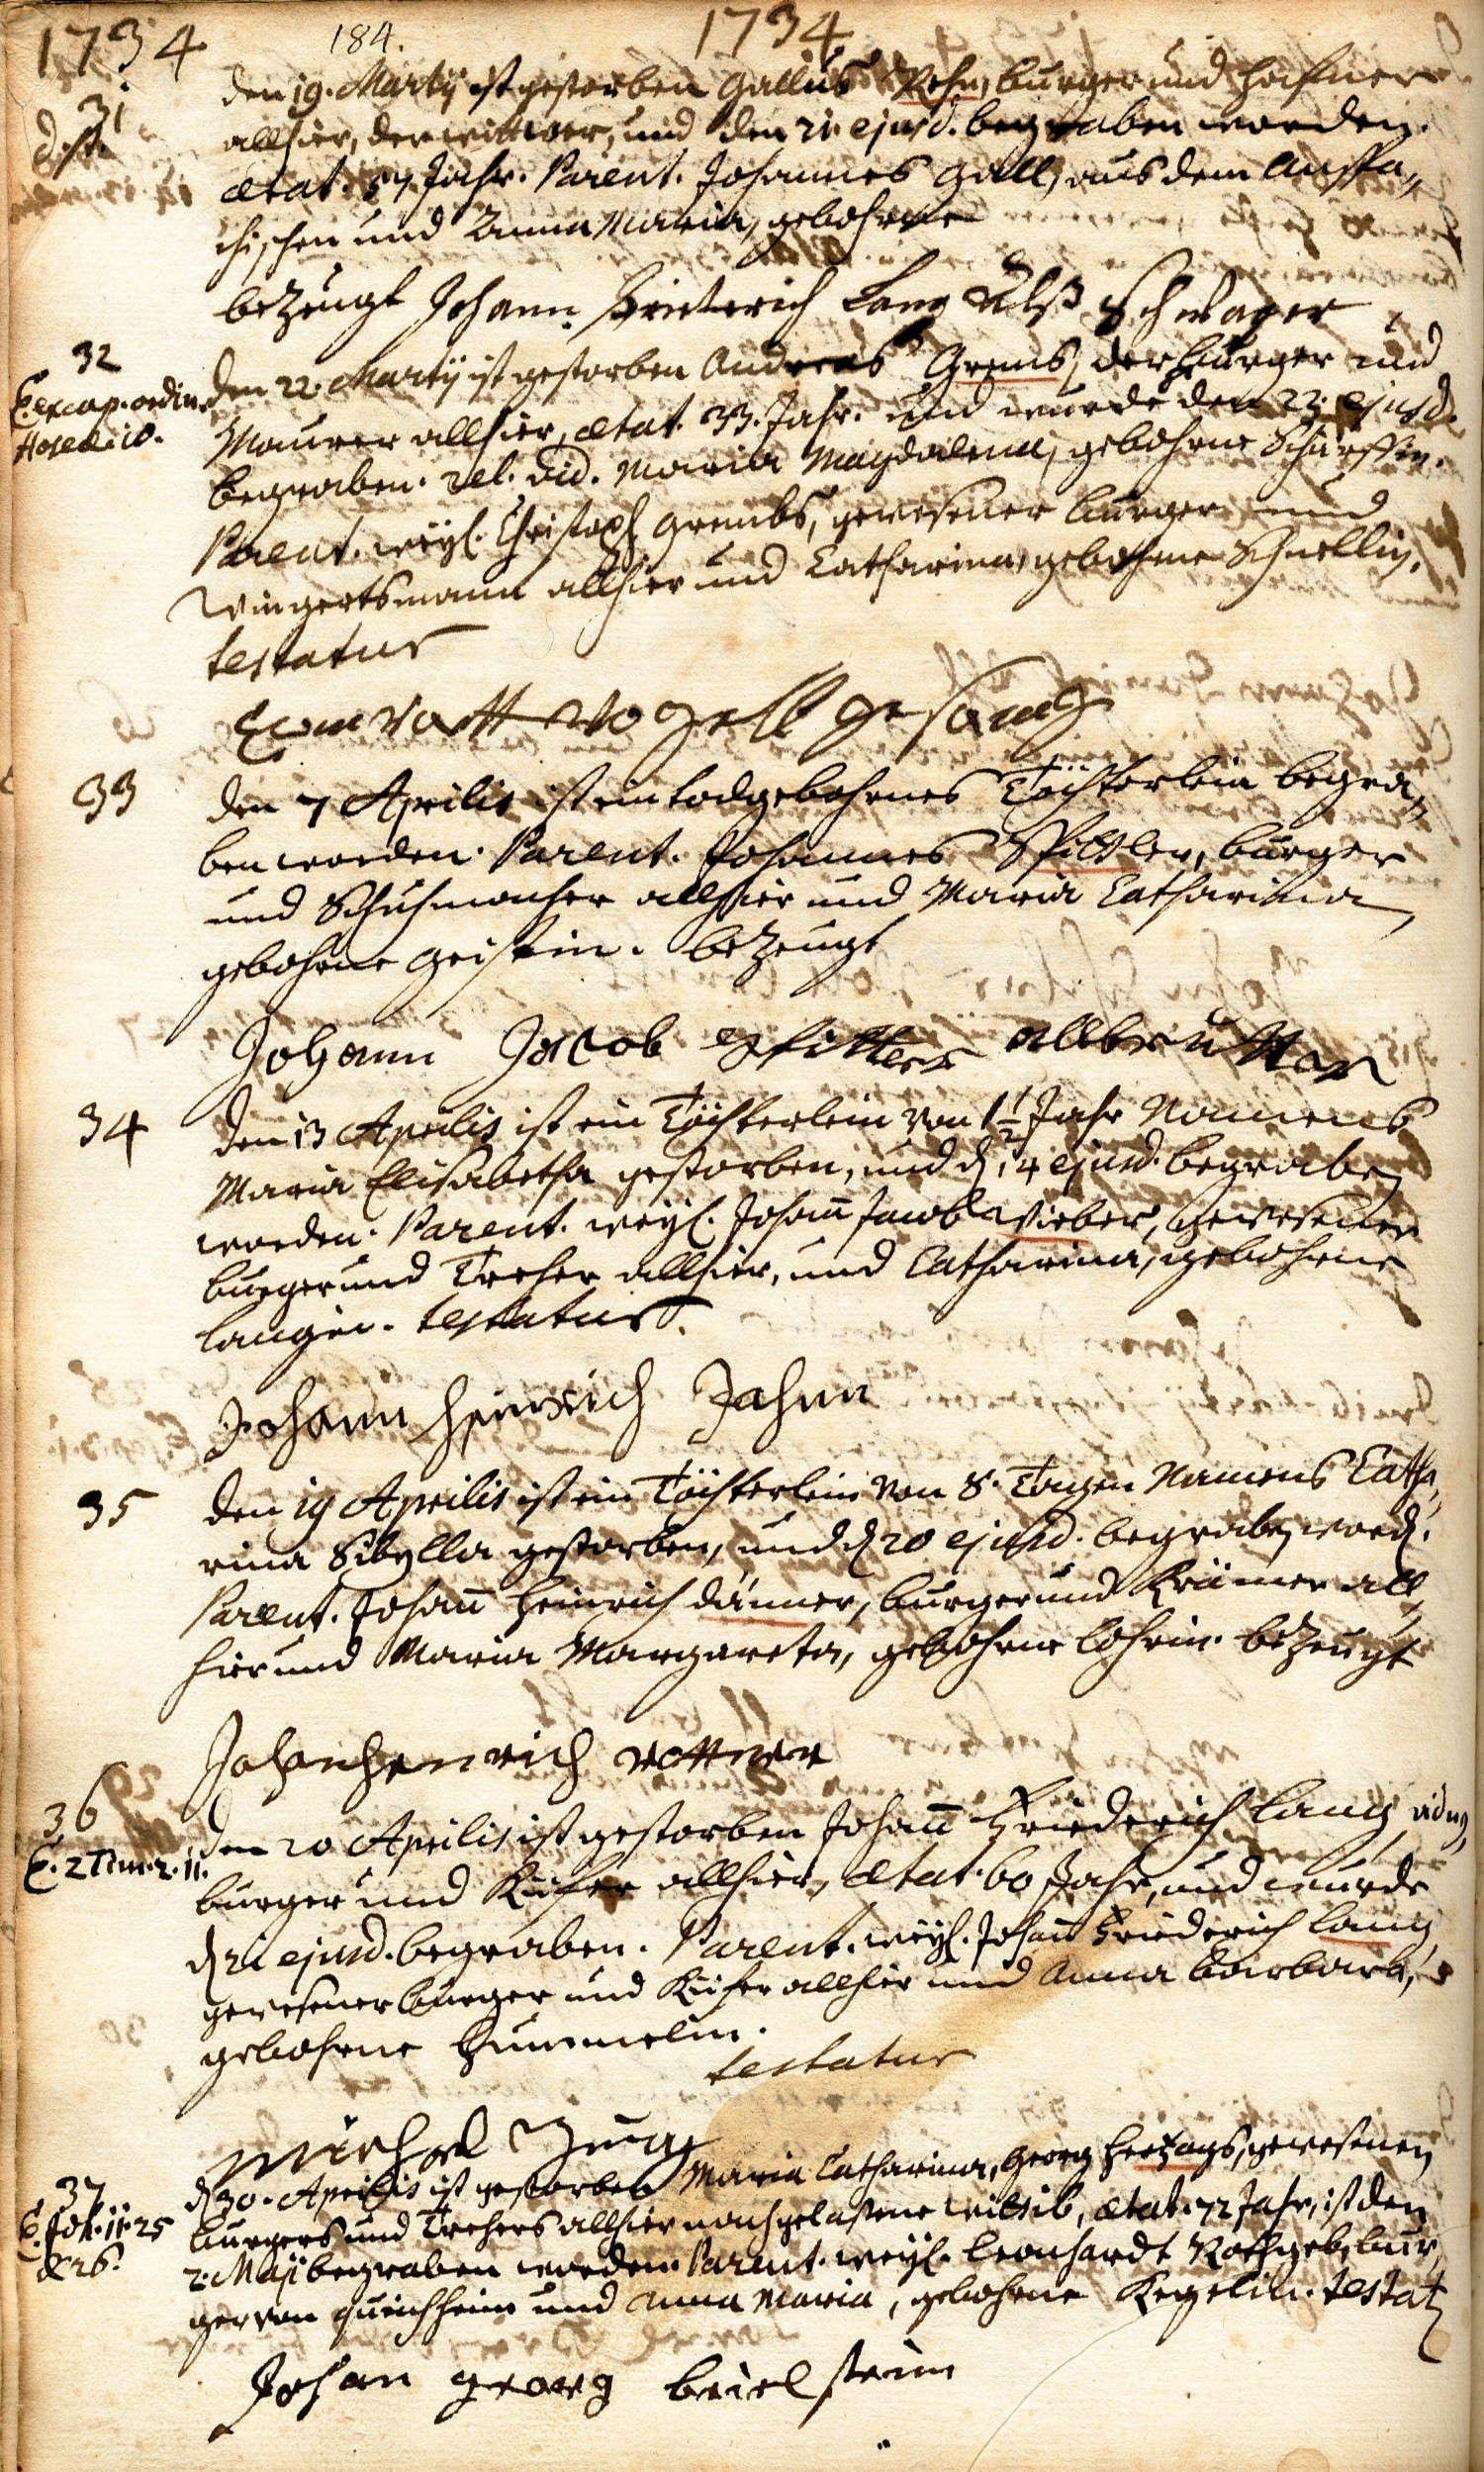 1734 184. 1734
31
den 19. Martÿ ist gestorben Gallus Rohn, burger und Hafner
allhier, der wittwer, und den 21. ejusd. begraben worden.
ætat. 57 Jahr. Parent. Johannes Gall, aus dem Anspa„
chischen und Anna Maria, gebohrne
bezeugt Johann Frieterich Lang Alß Schwager
32
E. ex cap. ordin.
Hosed: 10.
den 22. Martÿ ist gestorben Andreas Grems, der burger und
Maurer allhier, ætat. 33. Jahr. und wurde den 23. ejusd.
begraben. rel. vid. Maria Magdalena, gebohrne Scharffin.
Parent. weÿl. Christoph Grembs, gewesener burger und
Wingertsmann allhier und Catharina, gebohrne Schnellin.
testatur
Connratt Vogellgesang
33
den 7 Aprilis ist ein todgebohrnes Töchterlein begra„
ben worden. Parent. Johannes Spittler, burger
und Schuhmacher allhier und Maria Catharina
gebohrne Geistin. bezeugt
Johann Jacob Spittler allß brutter
34
den 13 Aprilis ist ein Töchterlein von 1 1/2 Jahr Namens
Maria Elisabetha gestorben, und d. 14 ejusd. begraben
worden. Parent. weÿl. Johañ Jacob Wieber, gewesener
burger und Treher allhier, und Catharina, gebohrne
Langin. testatur.
Johann Heinrich Jahnn
35
den 19 Aprilis ist ein Töchterlein von 8. Tagen Namens Catha„
rina Sibylla gestorben, und d. 20 ejusd. begraben word.
Parent. Johañ Heinrich Dänner, burger und Krämer all„
hier und Maria Margareta, gebohrne Lohrin. bezeugt
Johan Henrich Rottner
36
E. 2 Tim. 2. 11.
den 20 Aprilis ist gestorben Johañ Friederich Lang, vidus,
burger und Küfer allhier, ætat. 60 Jahr, und wurde
d. 21 ejusd. begraben. Parent. weÿl. Johañ Friederich Lang,
gewesener burger und Küfer allhier und Anna Barbara,
gebohrne Hummelin.
testatur
Michel Jung
37
E. Joh. 11. 25
& 26.
d. 30. Aprilis ist gestorben Maria Catharina, Georg Hertzogs, gewesenen
burgers und Trehers allhier nachgelaßene wittib, ætat. 72 Jahr, ist den
2. Maji begraben worden. Parent. weÿl. Leonhardt Rothgeb, bur„
ger von Queichheim und Anna Maria, gebohrne Kegelin. testat.
Johan georg beielstein